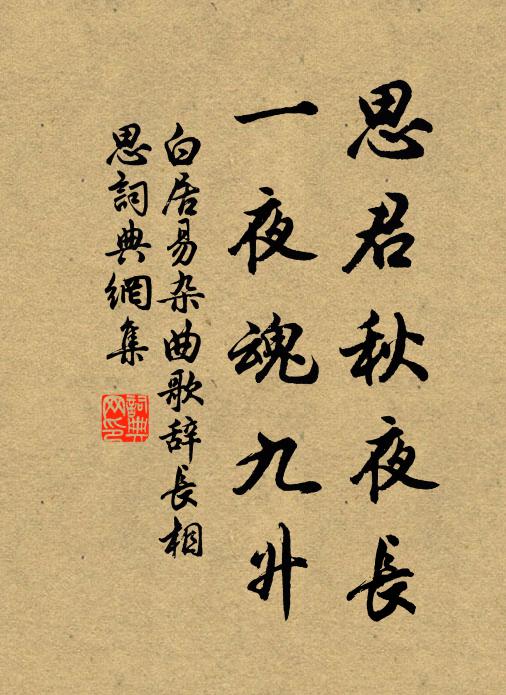 思君秋夜長
一夜魂九升
白居易杂曲歌辞長相
思詞典網集
詞典
网印